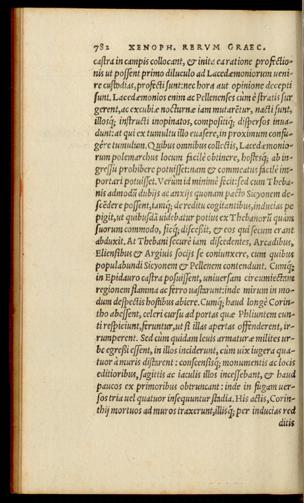 782 XENOPH. RERVM GRAEC.
castra in campis collocant, & inita ea ratione profectio-
nis ut possent primo diluculo ad Lacedæmoniorum ueni-
re custodias, profecti sunt: nec hora aut opinione decepti
sunt. Lacedæmonios enim ac Pellenenses cùm è stratis sur
gerent, ac excubiæ nocturnæ iam mutarētur, nacti sunt,
illosq; instructi inopinatos, compositiq; dispersos inua-
dunt: at qui ex tumultu illo euasere, in proximum confu-
gére tumulum. Quibus omnibus collectis, Lacedæmonio-
rum polemarchus locum facilè obtinere, hostesq; ab in-
gressu prohibere potuisset: nam & commeatus facilè im-
portari potuisset. Verùm id minimè fecit: sed cùm Theba-
nis admodū dubijs ac anxijs quonam pacto Sicyonem de-
scēdere possent, iamq; de reditu cogitantibus, inducias pe
pigit, ut quibusdā uidebatur potius ex Thebanorū quàm
suorum commodo, sicq; discessit, & eos qui secum erant
abduxit. At Thebani securè iam discedentes, Arcadibus,
Eliensibus & Argiuis socijs se coniunxere, cum quibus
populabundi Sicyonem & Pellenem contendunt. Cumq;
in Epidauro castra posuissent, uniuersam circumiectam
regionem flamma ac ferro uastarunt: inde mirum in mo-
dum despectis hostibus abiere. Cumq; haud longè Corin-
tho abessent, celeri cursu ad portas quæ Phliuntem eun-
ti respiciunt, feruntur, ut si illas apertas offenderent, ir-
rumperent. Sed cùm quidam leuis armaturæ milites ur-
be egressi essent, in illos inciderunt, cùm uix iugera qua-
tuor à muris distarent: conscensisq; monumentis ac locis
editioribus, sagittis ac iaculis illos incessebant, & haud
paucos ex primoribus obtruncant: inde in fugam uer-
sos tria uel quatuor insequuntur stadia. His actis, Corin-
thij mortuos ad muros traxerunt, illisq; per inducias red
ditis